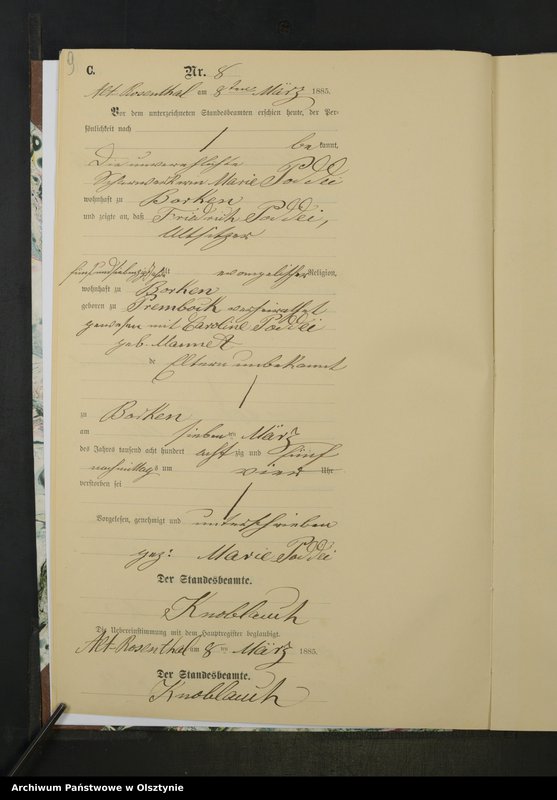 9
C. Nr. 8
Alt Rosenthal am 8ten März 1885.
Vor dem unterzeichneten Standesbeamten erschien heute, der Per-
sönlichkeit nach
be kannt,
die unverehelichte
Marie Poddei
wohnhaft zu Borken
und zeigte an, daß Friedrich Poddei,
Altsitzer
fünfundsiebenzig Jahr alt evangelischer Religion,
wohnhaft zu Borken
geboren zu verheirathet
gewesen mit Caroline Poddei
geb.
de Eltern unbekannt
zu Borken
am sieben ten März
des Jahres tausend acht hundert acht zig und fünf
nachmittags um vier Uhr
verstorben sei
Vorgelesen, genehmigt und unterschrieben
gez: Marie Poddei
Der Standesbeamte.
Knoblauch
Die Uebereinstimmung mit dem Hauptregister beglaubigt.
Alt-Rosenthal am 8 ten März 1885.
Der Standesbeamte.
Knoblauch
Archiwum Państwowe w Olsztynie